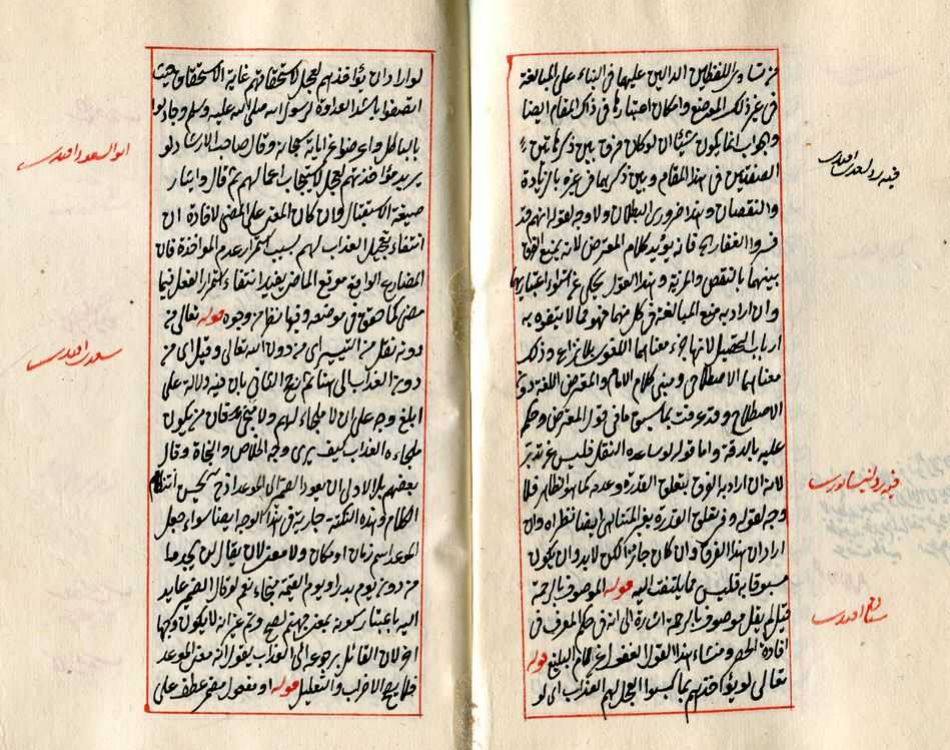 من تساوى اللفظين الدالين عليها فى البناء على المبالغة
فى غير ذلك الموضع وامكان اعتبارها فى ذلك المقام ايضا
وجواب انما يكون شيئا ان لو كان فرق بين ذكر هاتين
الصفتين فى هذا المقام وبين ذكرهما فى غيره بالزيادة
والنقصان وهذا ضرورى البطلان ولا وجه لقوله انهم قد
فسروا الغفار فانه يؤيد كلام المعترض لانه يمنع الفرق
بينهما بالنقص والمزية وهذا القول يحكى عن اعتبارها
وان اراد به منع المبالغة فى كل منهما فهو مما لا يتفوه به
ارباب التحصيل لانها جزء معناهما اللغوى بلا نزاع وذلك
معناهما الاصطلاحى ومبنى كلام الامام والمعترض اللغة دون
الاصطلاح وقد عرفت بما سبق ما فى قول المعترض وحكم
عليه بالدقة واما قوله لو ساعده النقل فليس
لانه ان اراد به الفرق بتعلق القدرة وعدمه كما هو الظاهر فلا
وجه لقوله وفى تعلق القدرة بغير المتناهى ايضا نظر اه وان
اراد ان هذا الفرق وان كان جائزا لكن لا بد وان يكون
مسبوقا به فليس مما يلتفت اليه قوله الموصوف بالرحمة
قيل لم يقل موصوف بالرحمة اشارة الى انه فى حكم المعرف فى
افادة الحصر ومنشاء هذا القول الغفول عن كلام البليغ قوله
تعالى لو يؤاخذهم بما كسبوا لعجل لهم العذاب اى لو
فيه رد لسعدى افندى
فيه رد لنيسابورى
افندى
لو اراد ان يؤاخذهم لعجل لاستحقاقهم غاية الاستحقاق حيث
اتصفوا باشد العداوة لرسول الله صلى الله عليه وسلم وجادلوا
بالباطل واعرضوا عن اياته وقال صاحب الارشاد لو
يريد مؤاخذتهم لعجل لاستيجاب اعمالهم ثم قال وايثار
صيغة الاستقبال وان كان المعنى على المضى لافادة ان
انتفاء تعجيل العذاب لهم بسبب استمرار عدم المواخذة فان
المضارع الواقع موقع الماضى يفيد انتفاء استمرار الفعل فيما
مضى كما حقق فى موضعه وفيه نظر من وجوه قوله تعالى من
دونه نقل من التيسير اى من دون الله تعالى وقيل اى من
دون العذاب الى هنا ثم رجح الثانى بان فيه دلالة على
ابلغ وجه على ان لا ملجاء لهم ولا منجى فان من يكون
ملجاءه العذاب كيف يرى وجه الخلاص والنجاة وقال
بعضهم بل الاولى ان يعود الضمير الى الموعد اذ به يحسن انتظام
الكلام وهذه النكتة جارية فى هذا الوجه ايضا سواء جعل
الموعد اسم زمان او مكان ولا معنى لان يقال لن يجدوا
من دون يوم بدر او يوم القيمة ملجاء نعم لو قال الضمير عايد
اليه باعتبار كونه بمعنى جهنم لصح وثم غير انه لا يكون وجها
اخر لان القائل برجوعه الى العذاب يقول انه معنى الموعد
فلا يصح الاضراب والتعليل قوله او مفعول مضمر عطف على
ابو السعود افندى
سعدى افندى